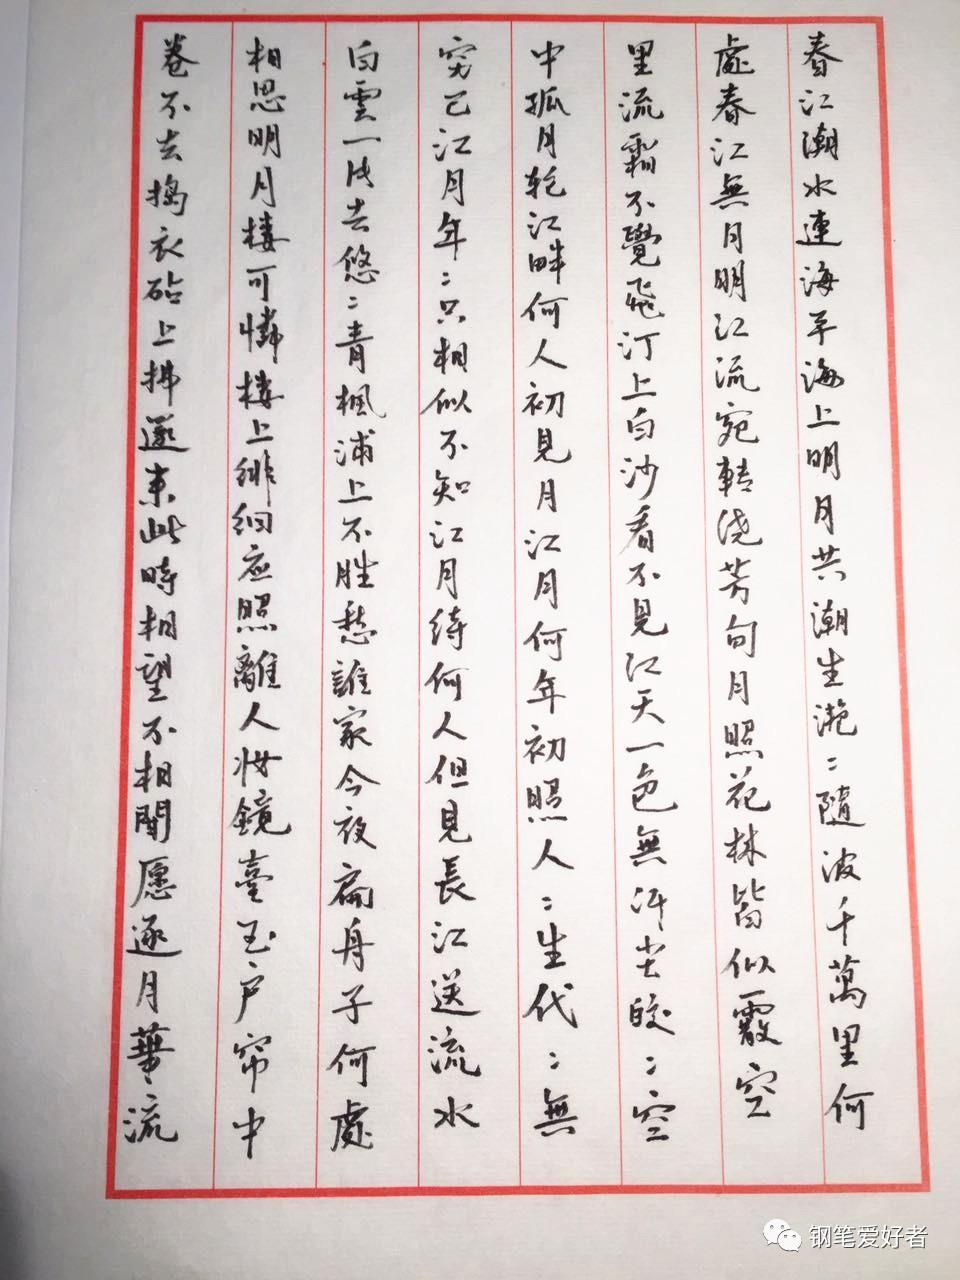 春江潮水連海平海上明月共潮生滟：隨波千萬里何
處春江無月明江流宛轉绕芳甸月照花林皆似霰空
里流霜不覺飛汀上白沙看不見江天一色無汙尘皎：空
中孤月轮江畔何人初見月江月何年初照人：生代：無
穷已江月年：只相似不知江月待何人但見長江送流水
白雲一片去悠：青枫浦上不胜愁誰家今夜扁舟子何處
相思明月楼可憐楼上绯徊应照離人妆鏡臺玉户帘中
卷不去捣衣砧上拂還来此時相望不相聞愿逐月華流
钢笔爱好者